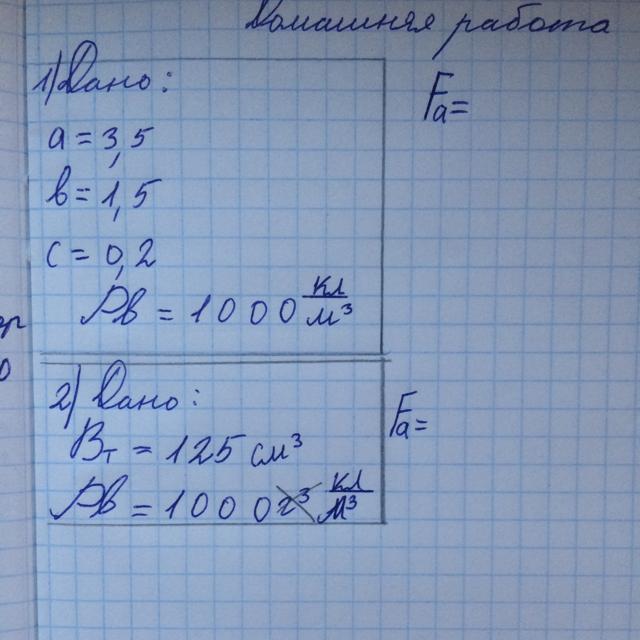 Домашняя работа
1) Дано:
a = 3,5
b = 1,5
c = 0,2
Pb = 1000 кл/м³
Fa=
2) Дано:
Вт = 125 см³
Pb = 1000 кл/м³
Fa=